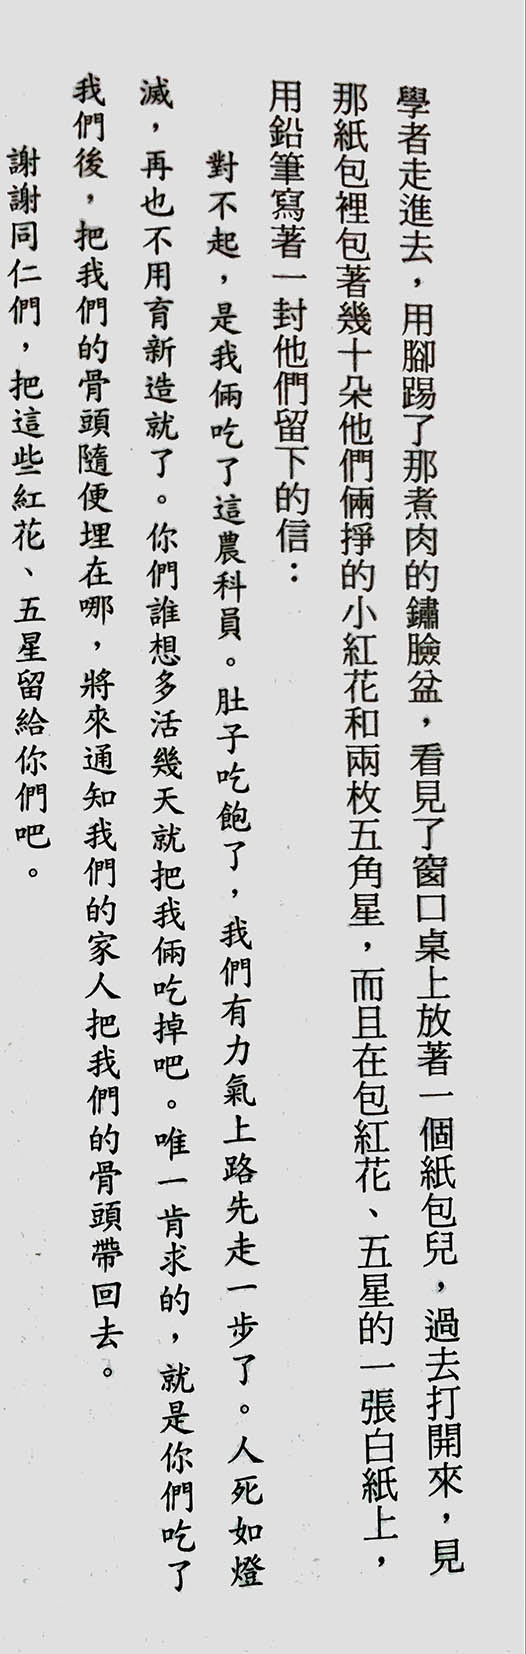 學者走進去，用腳踢了那煮肉的鏽臉盆，看見了窗口桌上放著一個紙包兒，過去打開來，見
那紙包裡包著幾十朵他們倆掙的小紅花和兩枚五角星，而且在包紅花、五星的一張白紙上，
用鉛筆寫著一封他們留下的信：
對不起，是我倆吃了這農科員。肚子吃飽了，我們有力氣上路先走一步了。人死如燈
滅，再也不用育新造就了。你們誰想多活幾天就把我倆吃掉吧。唯一肯求的，就是你們吃了
我們後，把我們的骨頭隨便埋在哪，將來通知我們的家人把我們的骨頭帶回去。
謝謝同仁們，把這些紅花、五星留給你們吧。